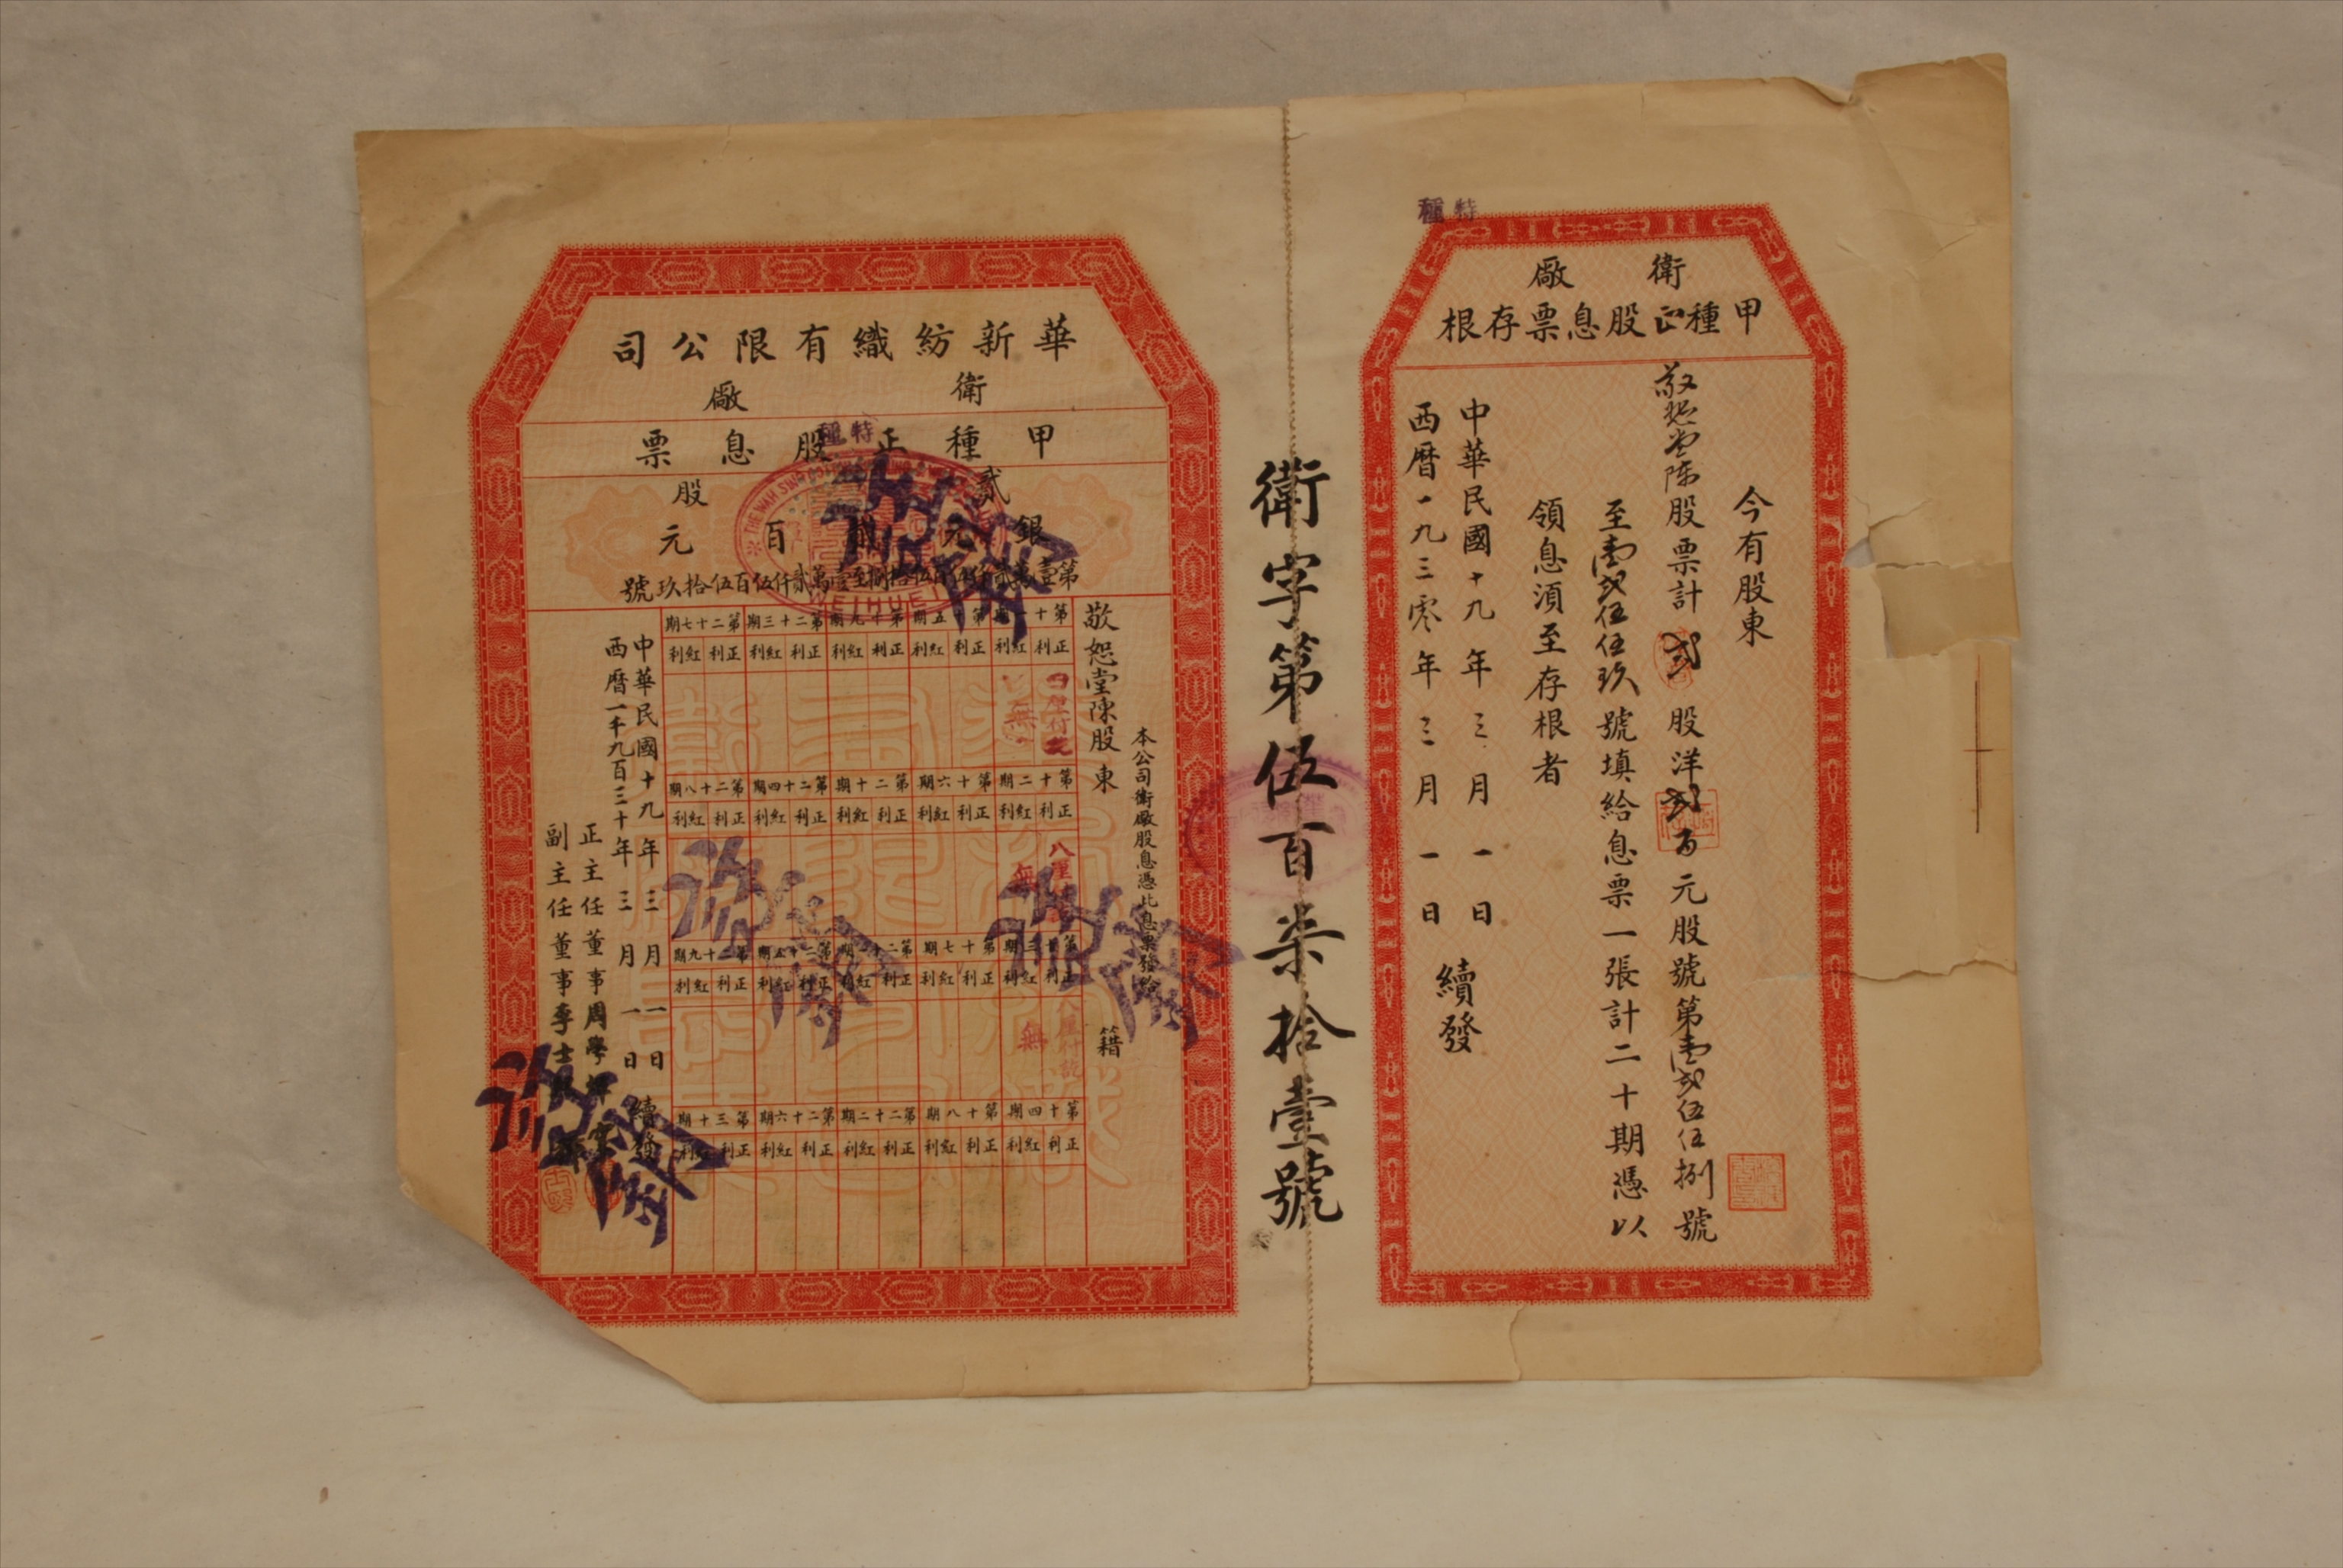 特種
衛廠
甲種正股息票存根
今有股東
敬恕堂陳股票計貳股洋貳百元股號第壹貳伍伍捌號
至壹貳伍伍玖號填給息票一張計二十期憑以
領息須至存根者
中華民國十九年三月一日
西曆一九三零年三月一日
續發
衛字第伍百柒拾壹號
華新紡織有限公司
衛廠
特種
甲種正股息票
貳股
銀元貳百元
第壹萬貳仟伍百伍拾捌至壹萬貳仟伍百伍拾玖號
THE WAH SWN
WEIHUEI
本公司衛廠股息憑此息票發給
敬恕堂陳股東
籍
第十一期 第十五期 第十九期 第二十三期 第二十七期
正利 紅利 正利 紅利 正利 紅利 正利 紅利 正利 紅利
無
第十二期 第十六期 第二十期 第二十四期 第二十八期
正利 紅利 正利 紅利 正利 紅利 正利 紅利 正利 紅利
八厘
無
第十三期 第十七期 第二十一期 第二十五期 第二十九期
正利 紅利 正利 紅利 正利 紅利 正利 紅利 正利 紅利
無
第十四期 第十八期 第二十二期 第二十六期 第三十期
正利 紅利 正利 紅利 正利 紅利 正利 紅利 正利 紅利
中華民國十九年三月一日
續發
西曆一千九百三十年三月一日
正主任董事周學
副主任董事李士